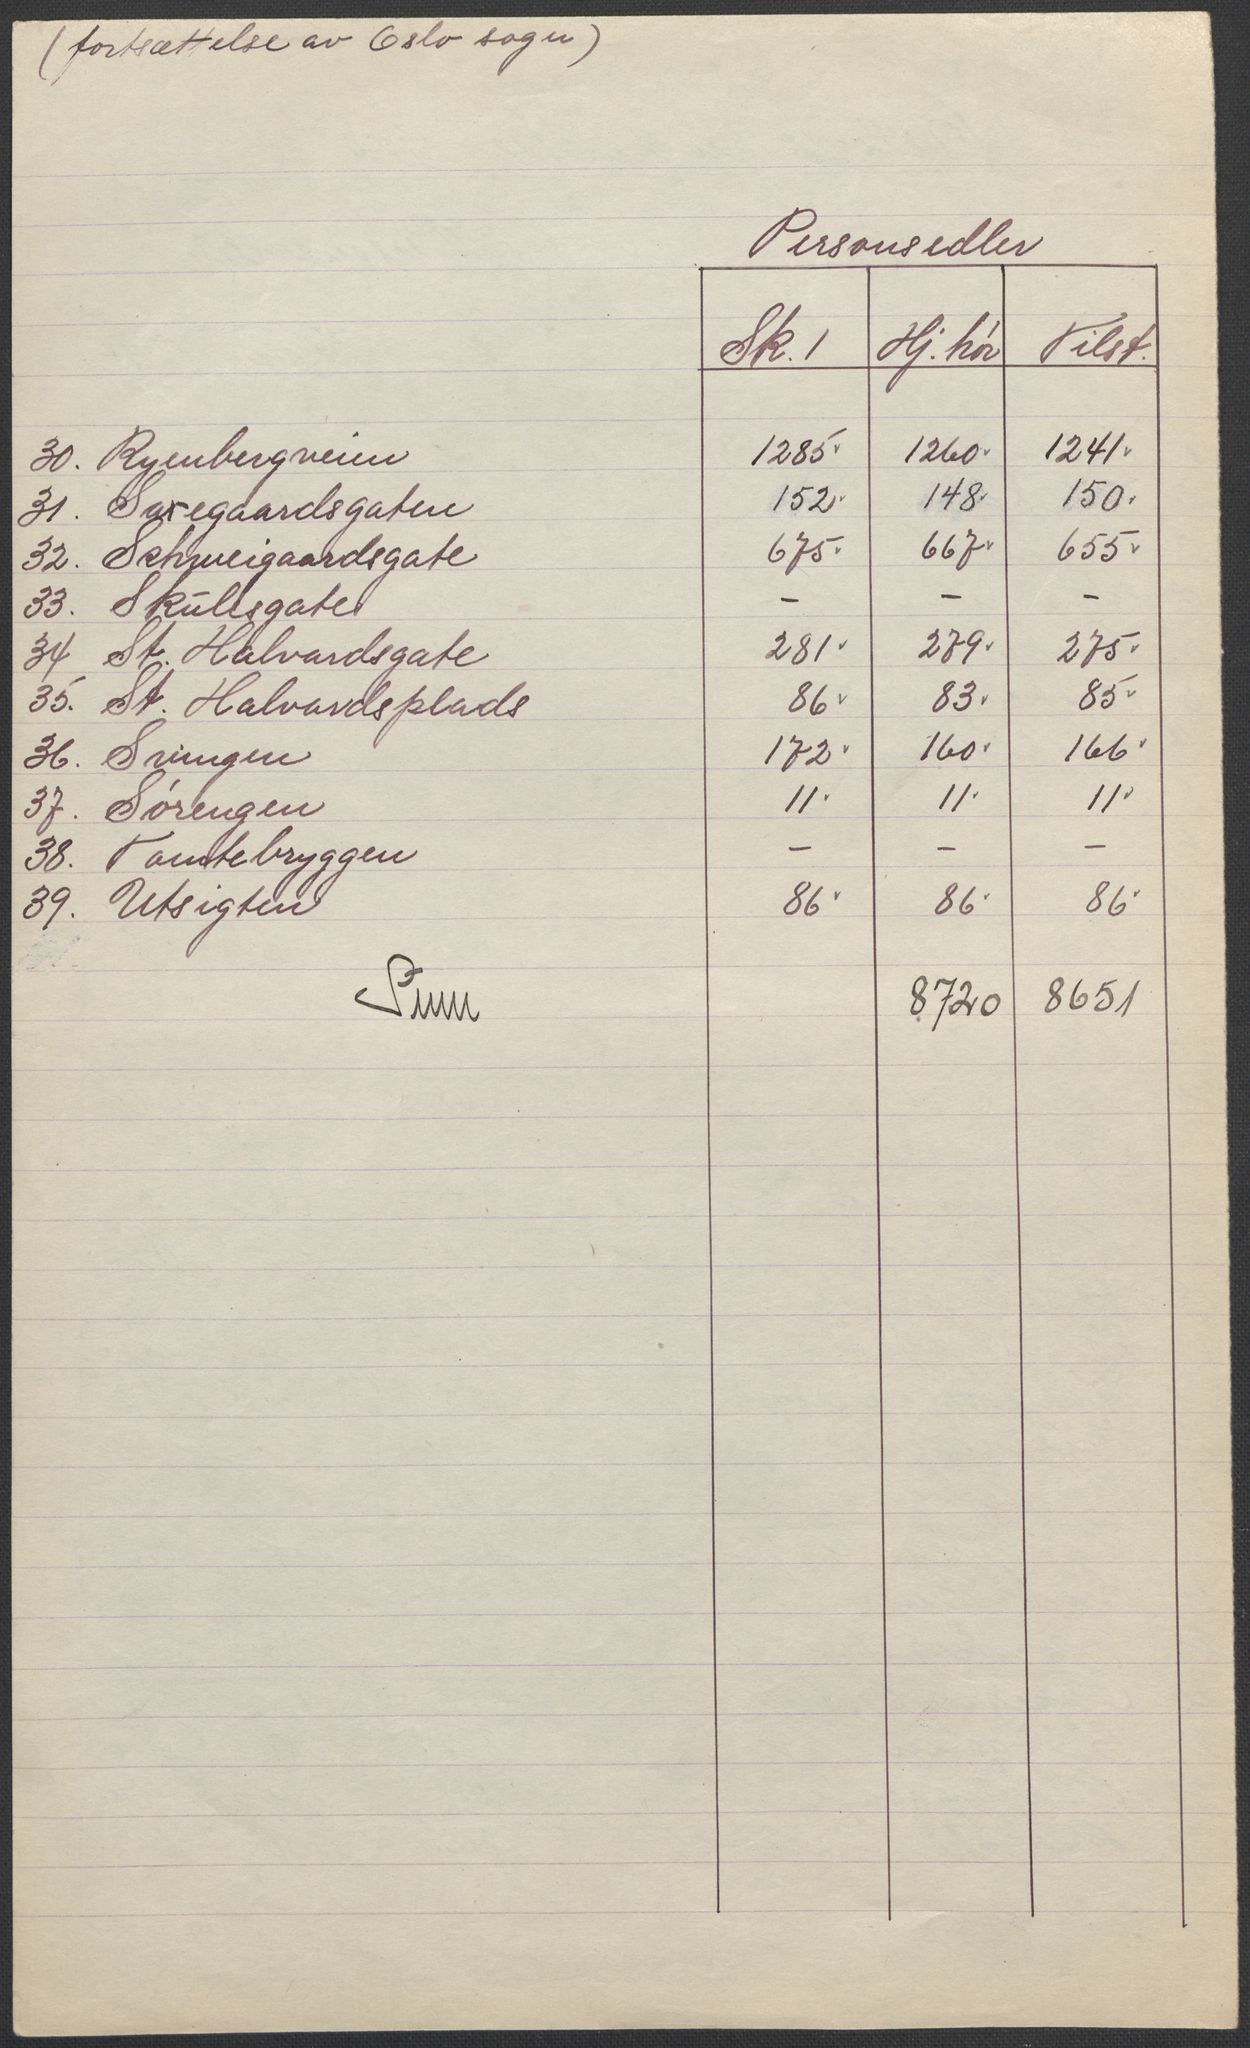 (fortsættelse av Oslo sogn)
Personsedler
Sk. 1 Hj. hör Tilst.
30. Ryenbergveien 1285 1260 1241
31. Saxegaardsgaten 152 148 150
32. Schweigaardsgate 675 667 655
33. Skulesgate - - -
34 St. Halvardsgate 281 279 275
35. St. Halvardsplads 86 83 85
36. Svingen 172 160 166
37. Sörengen 11 11 11
38. Tomtebryggen - - -
39. Utsigten 86 86 86
Sum 8720 8651